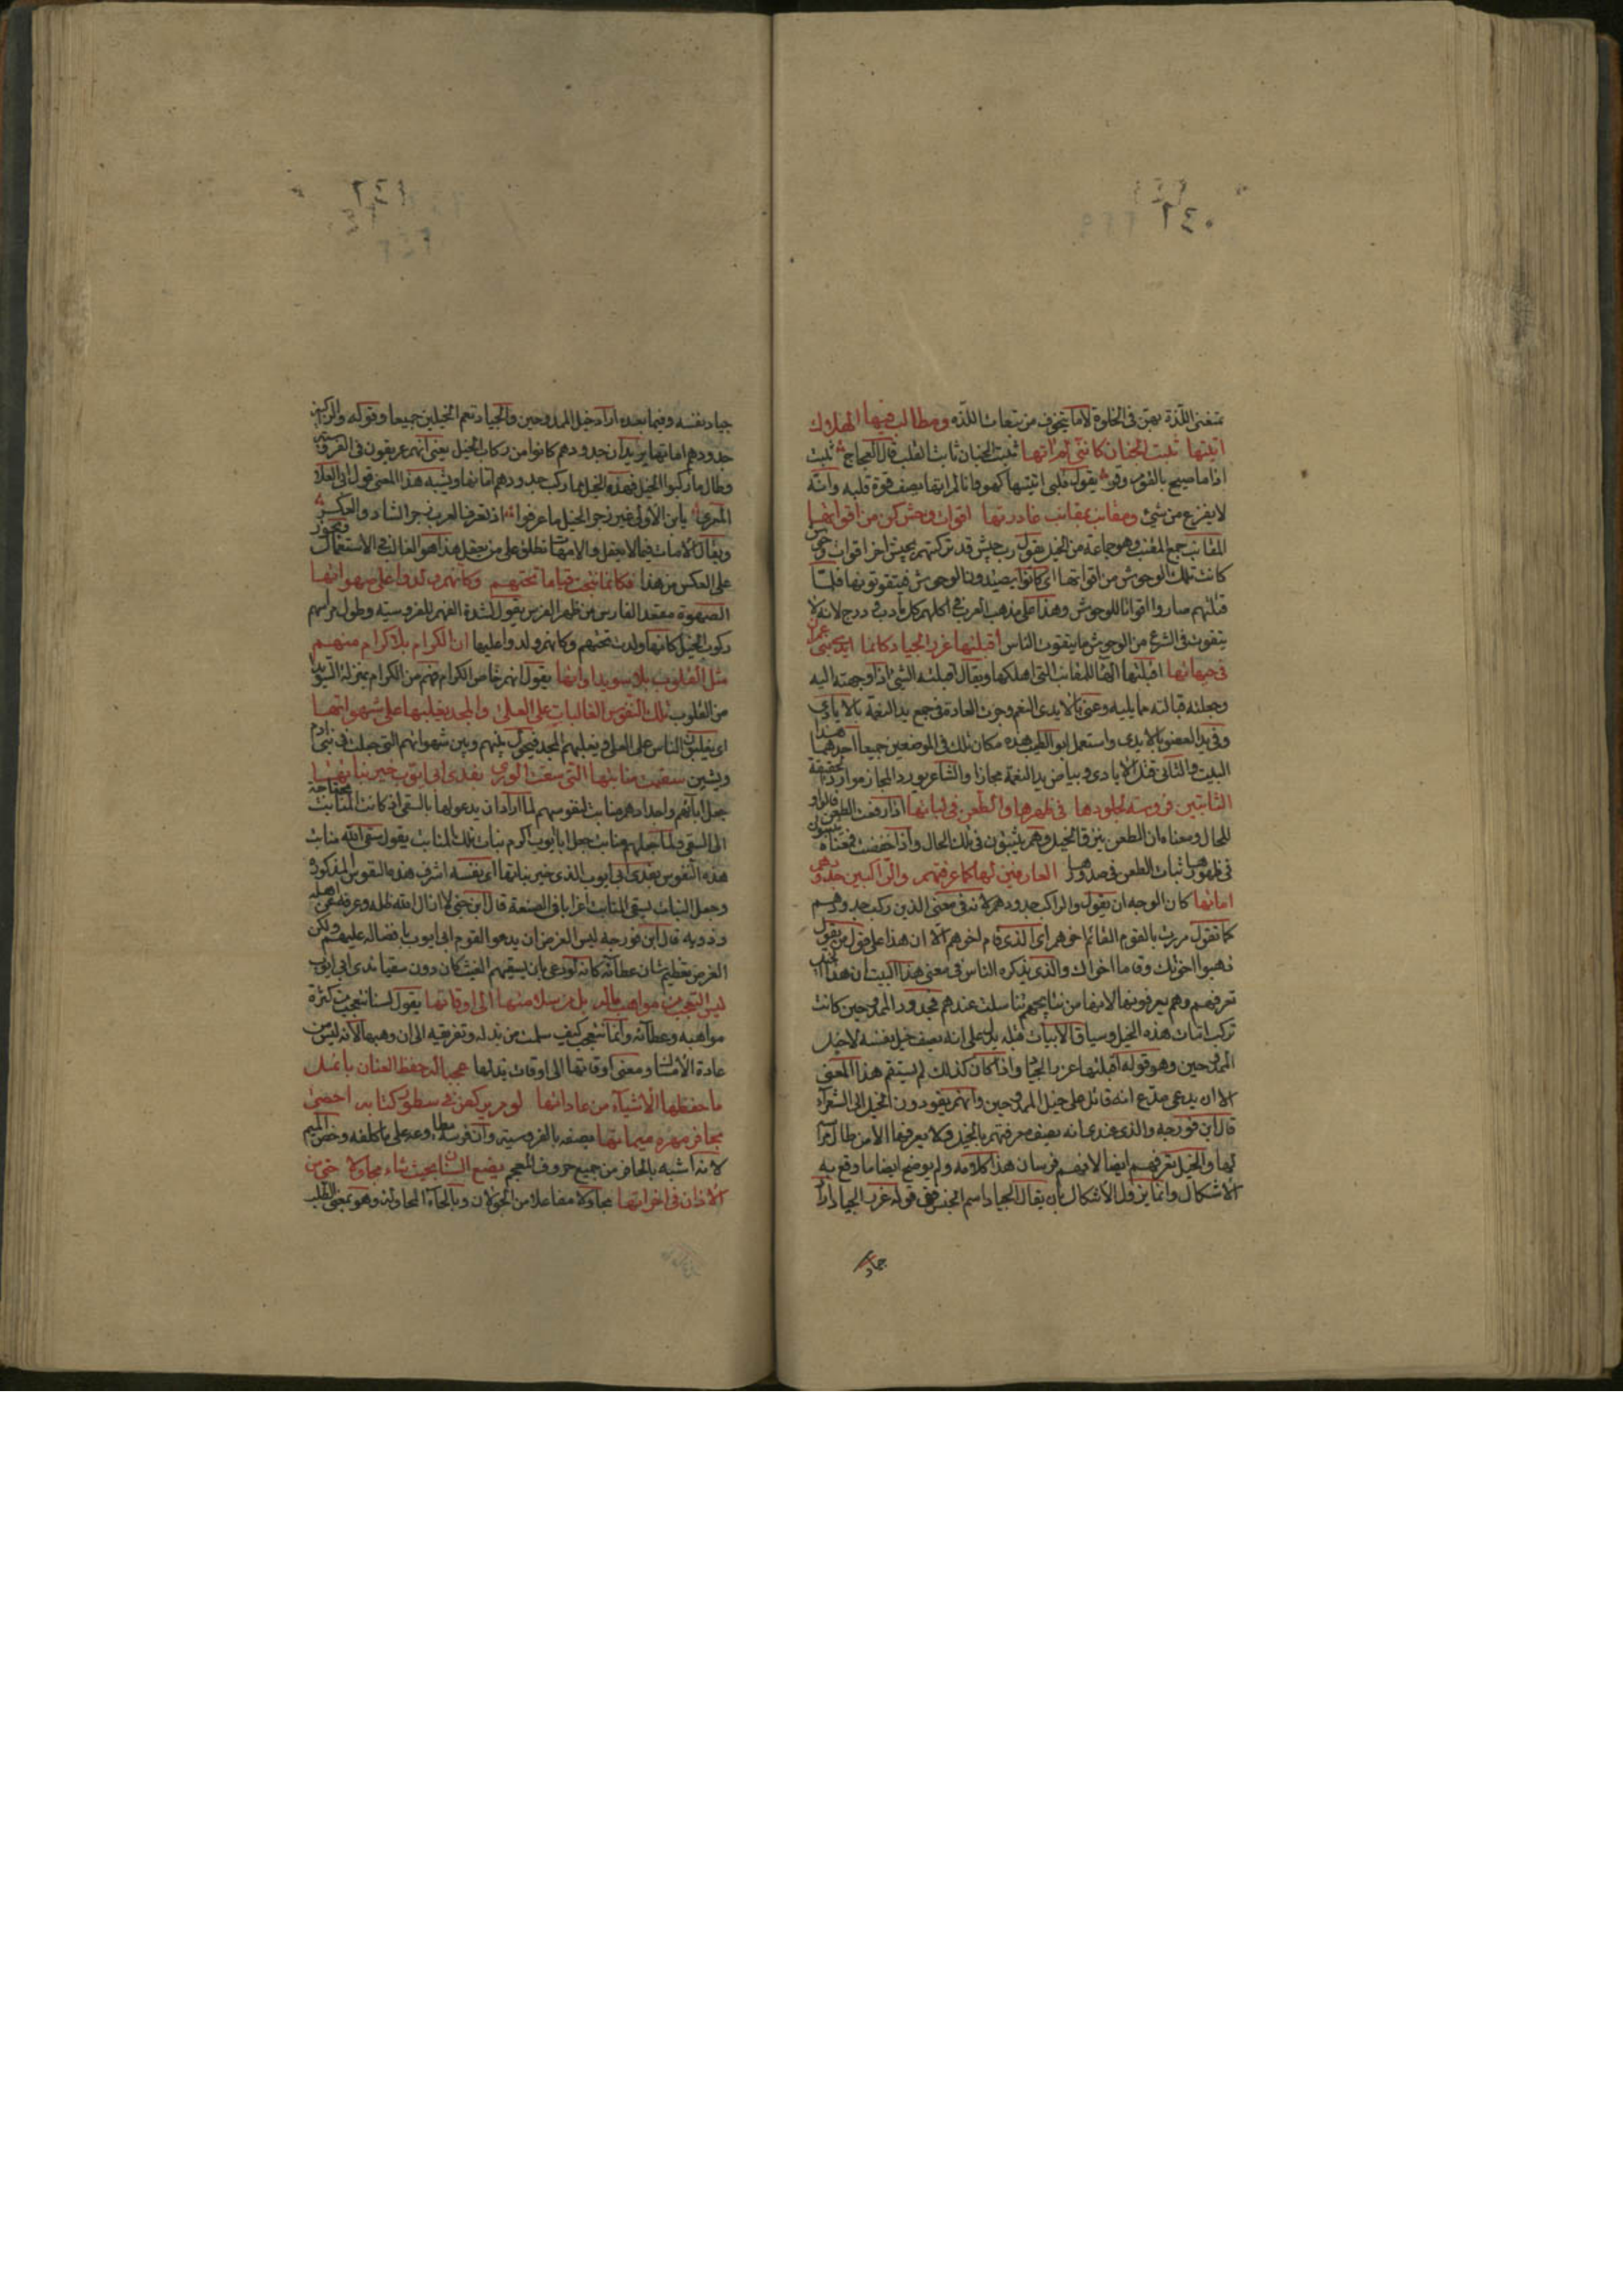 ٢٤٠
تمنعني اللذة بهن في الخلوة لاما يتخوف من تبعات اللذه ومطالب فيها الهلاك
اتيتها ثبت الجنان كانني لم اتها ثبت الجنان ثابت القلب قال العجاج ثبت
اذا ما صيح بالقوم وقر يقول قلبى اتيتها كهو وانا لم اتها يصف قوة قلبه وانه
لا يفزع من شئ ومقانب بمقانب غادرتها اقوات وحش كن من اقواتها
المقانب جمع المقنب وهو جماعة من الخيل يقول رب جيش قد تركتهم بجيش اخر اقوات وحش
كانت تلك الوحوش من اقواتها اى كانوا يصيدون الوحوش فيتقوتونها فلما
قتلتهم صاروا اقواتا للوحوش وهذا على مذهب العرب في اكلهم كل ما دب ودرج لانه لا
يتقوت في الشرع من الوحوش ما يتقوت الناس اقبلتها غرر الجياد كانما ايدى بنى عمران
في جبهاتها اقبلتها الهاء للمقانب التى اهلكها ويقال اقبلته الشئ اذا وجهته اليه
وجعلته قبالته مما يليه وعنى بالايدى النعم وجرت العادة في جمع يد النعمة بالايادى
وفي يد العضو بالايدى واستعمل ابو الطيب هذه مكان تلك في الموضعين جميعا احدهما هذا
البيت والثانى فتل الايادى وبياض يد النعمة مجازا والشاعر يورد المجاز موارد الحقيقة
الثابتين فروسة كجلودها في ظهرها والطعن في لباتها اذا رفعت الطعن فالواو
للحال ومعناه ان الطعن ينزق الخيل وهم يثبتون في تلك الحال واذا خفضت فمعناه يثبتون
في ظهورها ثبات الطعن في صدورها العارفين لها كما عرفتهم والراكبين جدودهم
اماتها كان الوجه ان يقول والراكب جدودهم لانه في معنى الذين ركب جدودهم
كما تقول مررت بالقوم القائم اخوهم اى الذى قام اخوهم الا ان هذا على قول من يقول
ذهبوا اخوتك وقاما اخواك والذى يذكره الناس في معنى هذا البيت ان هذا الخيل
تعرفهم وهم يعرفونها لانها من نتايجهم تناسلت عندهم فجدود الممدوحين كانت
تركب امات هذه الخيل وسياق الابيات قبله يدل على انه يصف خيل نفسه لا خيل
الممدوحين وهو قوله اقبلتها غرر الجياد واذا كان كذلك لم يستقم هذا المعنى
الا ان يدعى مدع انه قاتل على خيل الممدوحين وانهم يقودون الخيل الى الشعراء
قال ابن فورجه والذى عندى انه يصف معرفتهم بالخيل ولا يعرفها الا من طال مراسه
لها والخيل تعرفهم ايضا لانهم فرسان هذا كلامه ولم يوضح ايضا ما وقع به
الاشكال وانما يزول الاشكال بان يقال الجياد اسم الجنس ففى قوله غرر الجياد اراد
جياد
٢٤١
جياد نفسه وفيما بعده اراد خيل الممدوحين والجياد تعم الخيلين جميعا وقوله والراكبين
جدودهم اماتها يريد ان جدودهم كانوا من ركاب الخيل يعنى انهم عريقون في الفروسية
وطال ما ركبوا الخيل فهذه الخيل مما ركب جدودهم اماتها ويشبه هذا المعنى قول ابى العلاء
المعرى يا ابن الاولى غير زجر الخيل ما عرفوا اذ تعرف العرب زجر الشاء والعكر
ويقال الامات فيما لا يعقل والامهات تطلق على من يعقل هذا هو الغالب في الاستعمال ويجوز
على العكس من هذا فكانما نتجت قياما تحتهم وكانهم ولدوا على صهواتها
الصهوة مقعد الفارس من ظهر الفرس يقول لشدة الفهم للفروسية وطول مراسهم
ركوب الخيل كانها ولدت تحتهم وكانهم ولدوا عليها ان الكرام بلا كرام منهم
مثل القلوب بلا سويداواتها يقول انهم خاص الكرام فهم من الكرام بمنزلة السويداء
من القلوب تلك النفوس الغالبات على العلى والمجد يغلبها على شهواتها
اى يغلبون الناس على العلى ويغلبهم المجد فيحول بينهم وبين شهواتهم التى جعلت في بنى ادم
وتشين سقيت منابتها التى سقت الورى بندى ابى ايوب خير نباتها
جعل اباءهم واجدادهم منابت لنفوسهم لما اراد ان يدعو لها بالسقى اذ كانت المنابت محتاجة
الى السقى ولما جعلهم منابت جعل ابا ايوب اكرم نبات تلك المنابت يقول سقى الله منابت
هذه النفوس بندى ابى ايوب الذى خير نباتها اى نفسه اشرف هذه النفوس المذكورة
وجعل النبات يسقى المنابت اغرابا في الصنعة قال ابن جنى لا ازال الله ظله وعرفه عن اهله
وذويه قال ابن فورجه ليس الغرض ان يدعو لقوم ابى ايوب بافضاله عليهم ولكن
الغرض تعظيم شان عطائه كانه لو دعى بان يسقيهم الغيث كان دون سقيا ندى ابى ايوب
ليس التعجب من مواهب ماله بل من سلامتها الى اوقاتها يقول لسنا نتعجب من كثرة
مواهبه وعطائه وانما نتعجب كيف سلمت من بذله وتفريقه الى ان وهبها لانه ليس من
عادة الامساك ومعنى اوقاتها الى اوقات بذلها عجبا له حفظ العنان بانمل
ما حفظها الاشياء من عاداتها لو مر يركض في سطور كتابه احصى
بحافر مهره ميماتها يصفه بالفروسية وان فرسه يطاوعه على ما كلفه وخص الميم
لانه اشبه بالحافر من جميع حروف المعجم يضع السنان بحيث شاء مجاولا حتى من
الاذان في اخراتها مجاولا مفاعلا من الجولان وبالحاء المحاولة وهو بمعنى الطلب